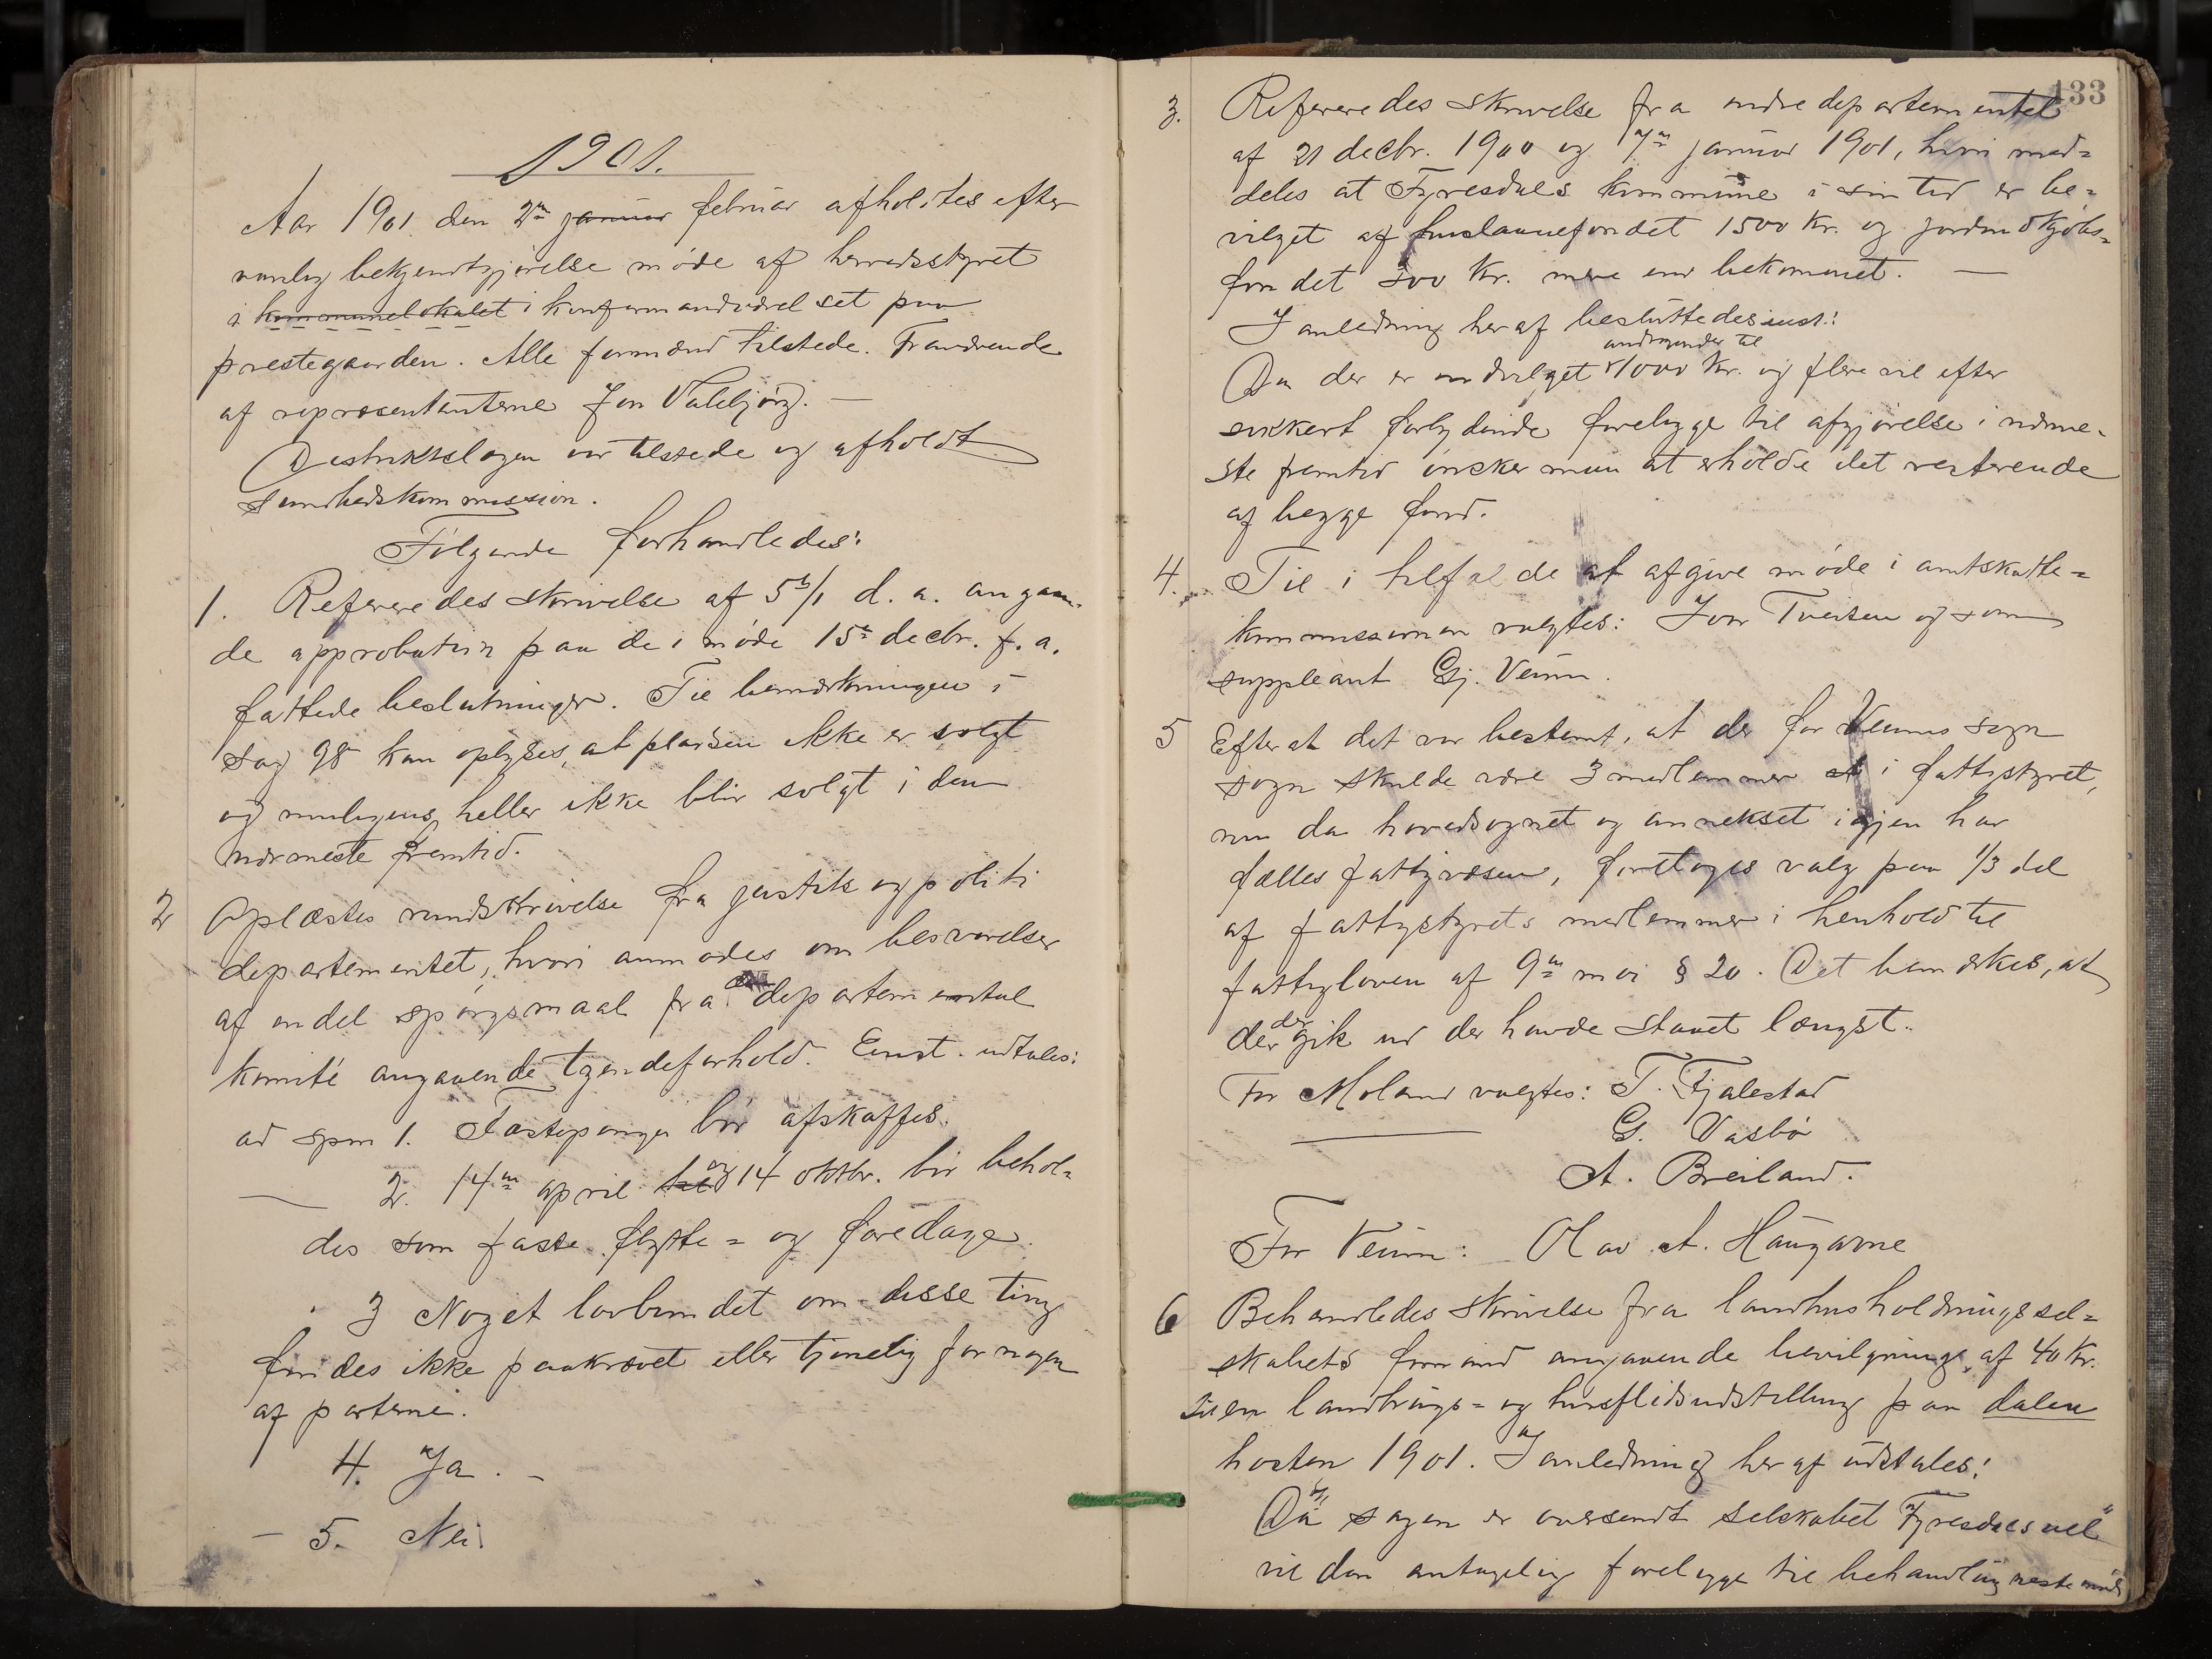 1901.
Aar 1901 den 2den januar februar afholdtes efter
vanlig bekjendtgjørelse møde af herredsstyret
i kommunelokalet i konfirmandværelset paa
prestegaarden. Alle formænd tilstede. Fraværende
af repræsentanterne Jon Valebjørg. —
Distriktslægen var tilstede og afholdt
sundhedskommission.
Følgende forhandledes:
1. Refereredes skrivelse af 5te/1 d. a. angaaen-
de approbation paa de i møde 15de decbr. f. a.
fattede beslutninger. Til bemærkningen i
sag 98 kan oplyses, at pladsen ikke er solgt
og muligens heller ikke blir solgt i den
nærmeste fremtid.
2 Oplæstes rundskrivelse fra justits og politi
departementet, hvori anmodes om besvarelser
af endel spørgsmaal fra departemental
komité angaaende tyendeforhold. Eenst. udtales:
ad spm 1. Fæstepenge bør afskaffes.
— 2. 14de april til og 14 oktbr. bør behol=
des som faste flytte= og faredage.
3 Noget lovbundet om disse ting
findes ikke paakrævet eller tjenelig for nogen
af parterne.
4. Ja. —
— 5. Nei.
133
3. Refereredes skrivelse fra indredepartementet
af 21 decbr. 1900 og 17de januar 1901, hvori med=
deles at Fyresdals kommune i sin tid er be=
vilget af huslaanefondet 1500 kr. og jordindkjøbs=
fondet 500 kr. mere end bekommet. —
I anledning heraf besluttedes enst.:
andragender til
Da der er indvilget 1000 kr. og flere vil efter
sikkert forlydende foreligge til afgjørelse i nærme-
ste fremtid ønsker man at erholde det resterende
af begge fond.
4. Til i tilfælde at afgive møde i amtskatte=
kommissionen valgtes: Jon Tveiten og som
suppleant Gj. Veum.
5 Efter at det var bestemt, at der for Veums sogn
sogn skulde være 3 medlemmer af i fattigstyret,
nu da hovedsognet og annekset igjen har
fælles fattigvæsen, foretoges valg paa 1/3 del
af fattigstyrets medlemmer i henhold til
fattigloven af 9de mai § 20. Det bemærkes, at
der
der gik ud der havde staaet længst.
For Moland valgtes: T. Fjalestad
G. Vasbø
A. Breiland.
For Veum: Olav A. Haugarne
6 Behandledes skrivelse fra landhusholdningssel=
skabets formand angaaende bevilgning af 40 kr.
til en landbrugs= og husflidsudstilling paa dalen
høsten 1901. I anledning heraf udtales:
Da sagen er oversendt selskabet "Fyresdals vel"
vil den antagelig foreligge til behandling neste møde